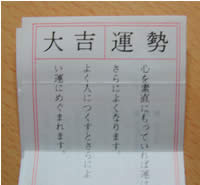 大吉 運勢
心を素直にもっていれば運は
さらによくなります。
よく人につくすとさらによ
い運にめぐまれます。